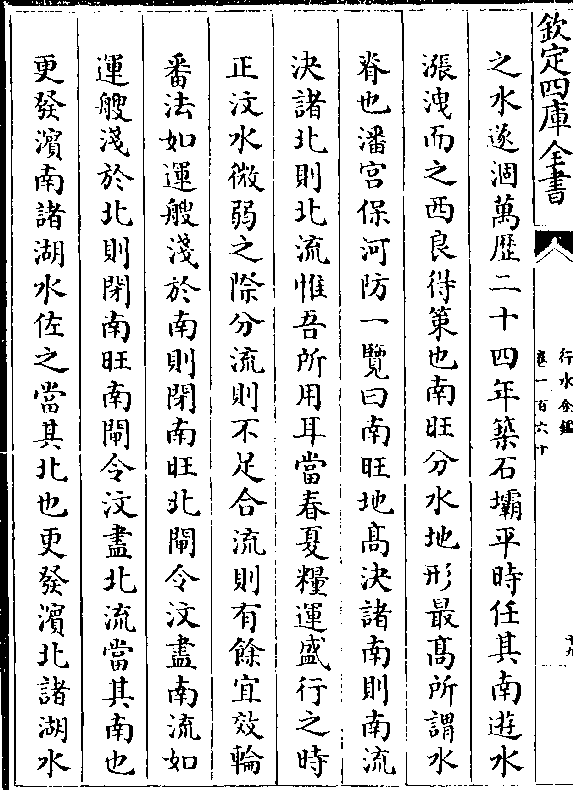 欽定四庫全書
行水金鑑
卷一百六十
十九
之水遂涸萬厯二十四年築石壩平時任其南遊水
漲洩而之西良得策也南旺分水地形最髙所謂水
脊也潘宫保河防一覽曰南旺地髙決諸南則南流
決諸北則北流惟吾所用耳當春夏糧運盛行之時
正汶水微弱之際分流則不足合流則有餘宜效輪
番法如運艘淺於南則閉南旺北閘令汶盡南流如
運艘淺於北則閉南旺南閘令汶盡北流當其南也
更發濵南諸湖水佐之當其北也更發濵北諸湖水